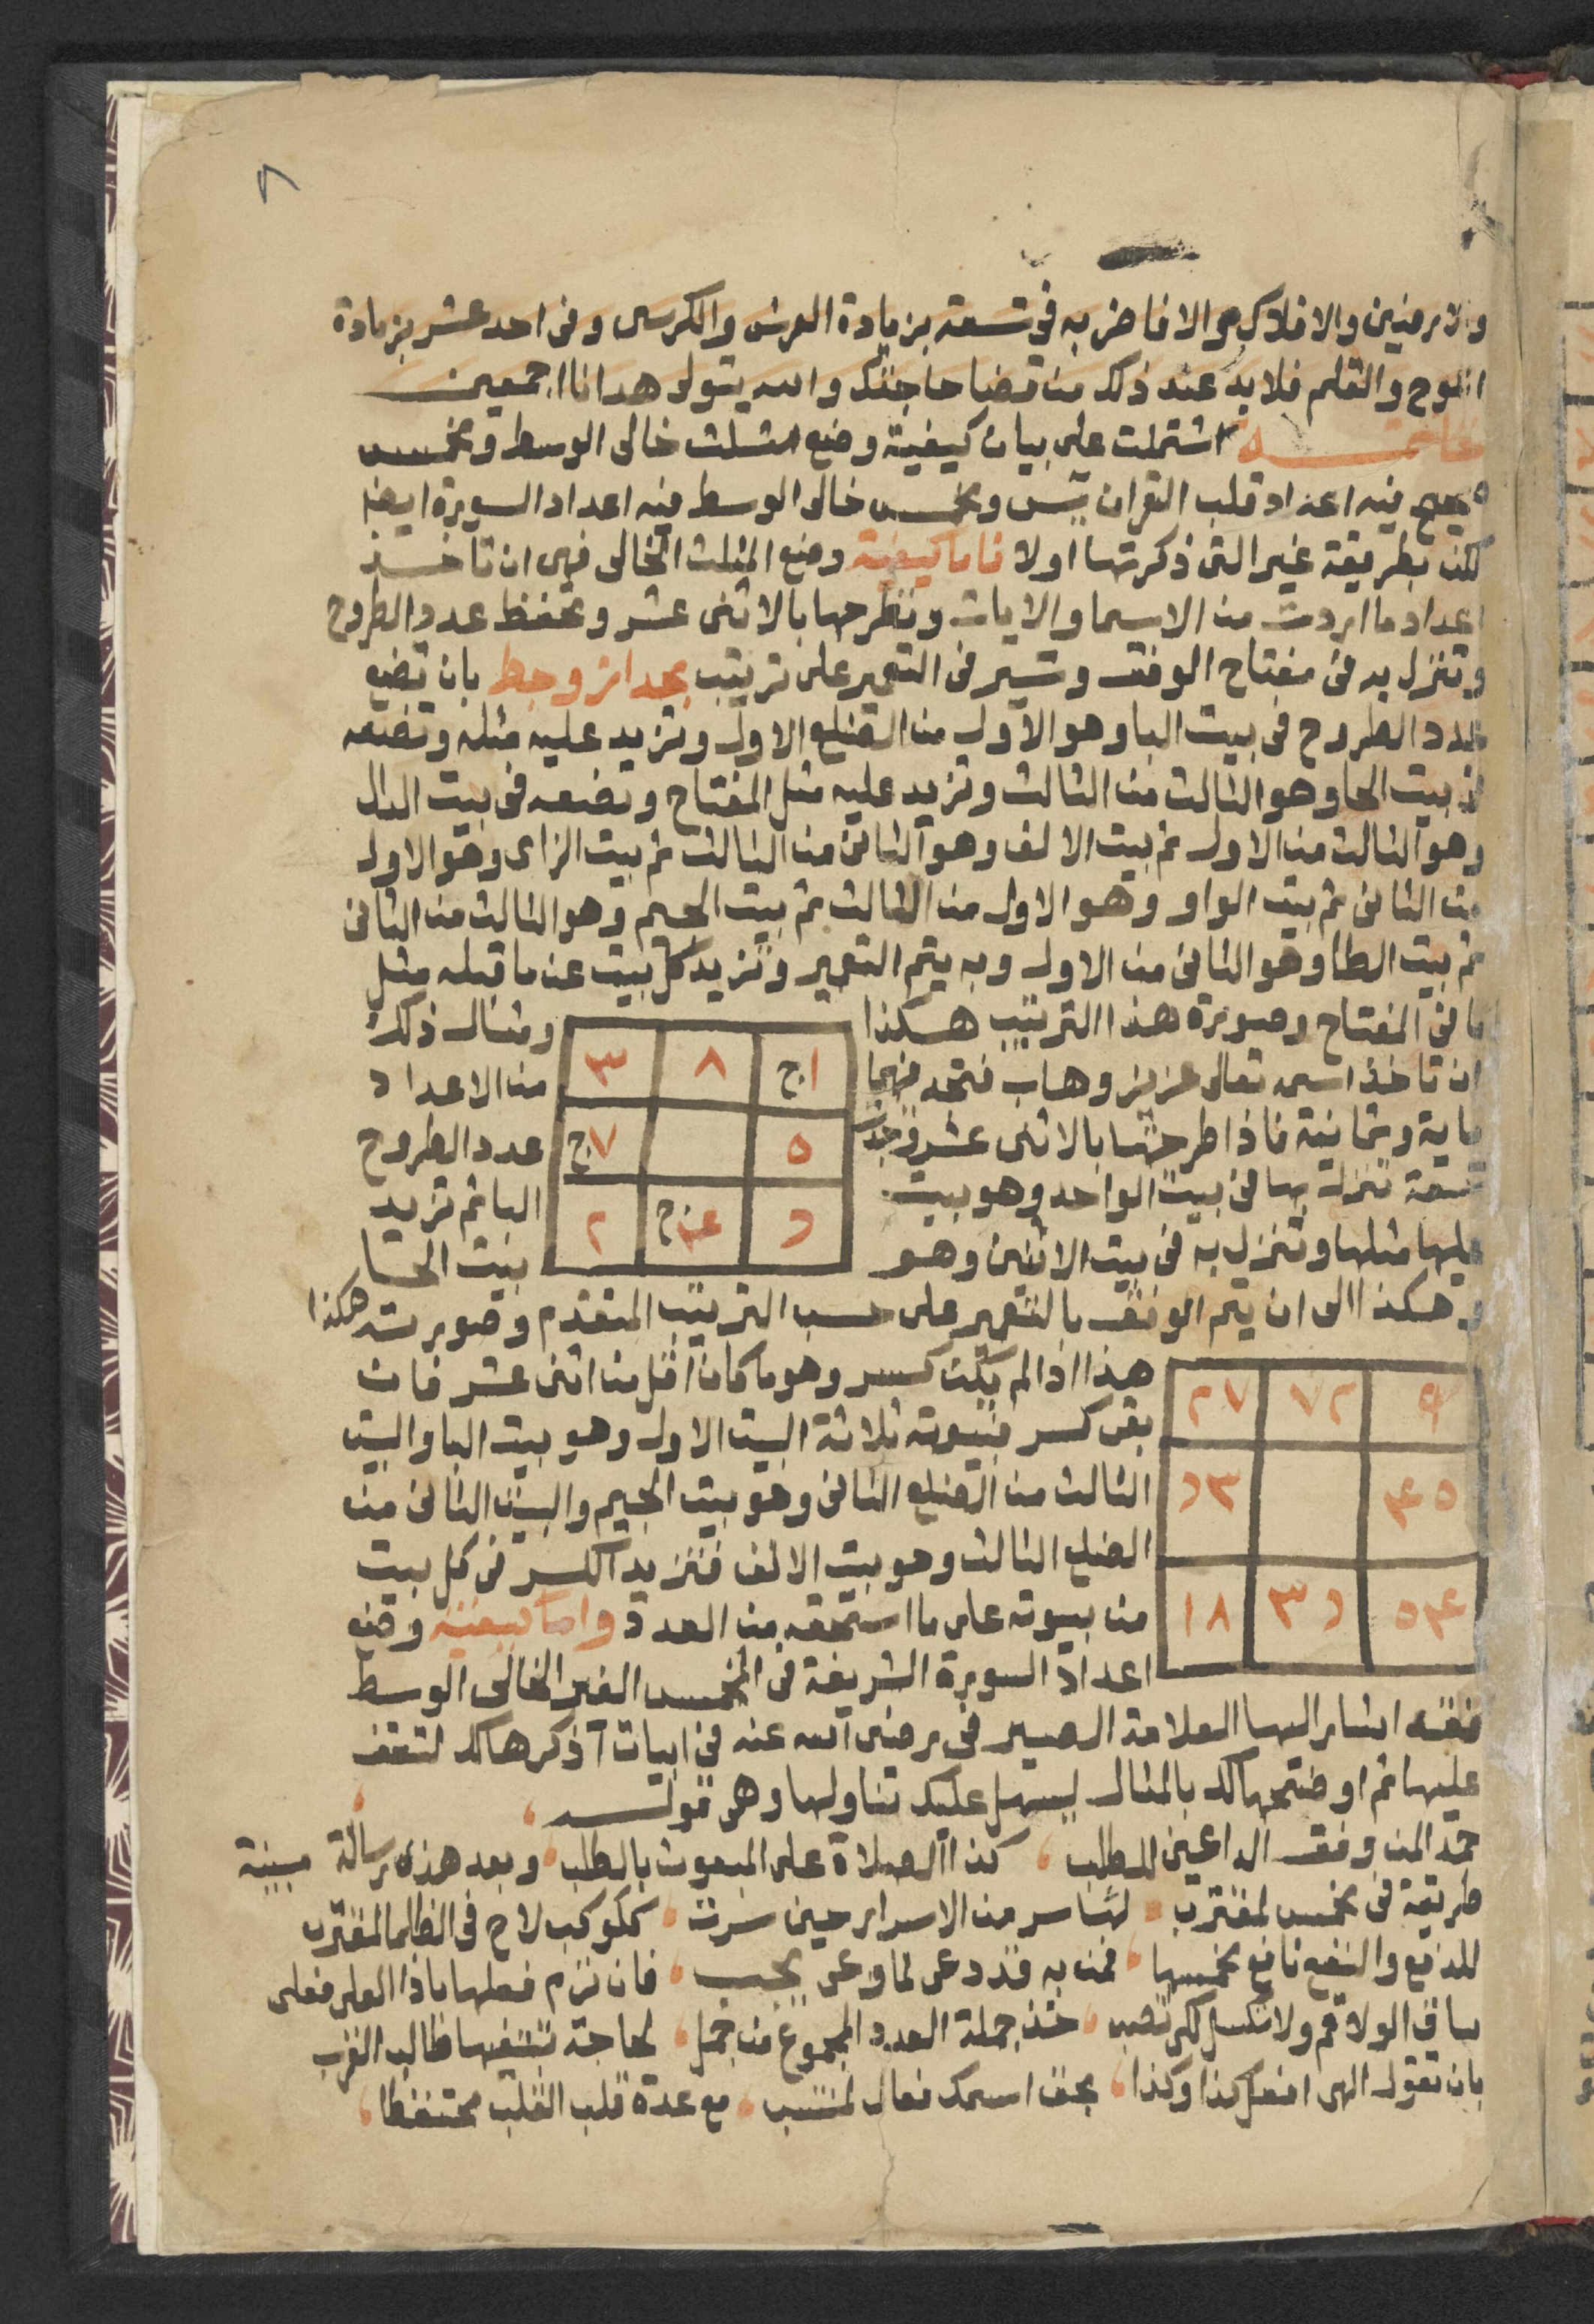 ٨
والارضين والافلاك والا فاضربه في تسعة بزيادة العرش والكرسى وفى احد عشر بزيادة
اللوح والقلم فلا بد عند ذلك من قضا حاجتك والله يتولى هدانا اجمعين
خاتمة اشتملت على بيان كيفية وضع مثلث خالى الوسط ومخمس
فيه اعداد قلب القران يس ومخمس خالى الوسط فيه اعداد السورة ايضا
لكن بطريقة غير التى ذكرتها اولا فاما كيفية وضع المثلث الخالى فهى ان تاخذ
اعداد ما اردت من الاسما والايات وتطرحها بالاثنى عشر وتحفظ عدد الطروح
وتنزل به فى مفتاح الوفق وتسير فى التعمير على ترتيب بحدازوجط بان تضع
عدد الطروح فى بيت البا وهو الاول من الضلع الاول وتزيد عليه مثله وتضعه
فى بيت الحا وهو الثالث من الثالث وتزيد عليه مثل المفتاح وتضعه فى بيت الدال
وهو الثالث من الاول ثم بيت الالف وهو الثانى من الثالث ثم بيت الزاى وهو الاول
من الثانى ثم بيت الواو وهو الاول من الثالث ثم بيت الجيم وهو الثالث من الثانى
ثم بيت الطا وهو الثانى من الاول وبه يتم التعمير وتزيد كل بيت عن ما قبله مثل
ما فى المفتاح وصورة هذا الترتيب هكذا ومثال ذلك
ان تاخذ اسمه تعالى عزيز وهاب فتجد فيهما من الاعداد
ماية وثمانية فاذا طرحتها بالاثنى عشر وجدت عدد الطروح
تسعة تنزل بها فى بيت الواحد وهو بيت البا ثم تزيد
عليها مثلها وتنزل به فى بيت الاثنين وهو بيت الحا
١ج ٨ ٣
٥ ٧ج
٢
وهكذا الى ان يتم الوفق بالتعمير على حسب الترتيب المتقدم وصورته هكذا
٩ ٧٢ ٢٧
هذا اذا لم يكن كسر وهو ما كان اقل من اثنى عشر فان
بقى كسر فبيوته ثلاثة البيت الاول وهو بيت البا والبيت
الثالث من الضلع الثانى وهو بيت الجيم والبيت الثانى من
الضلع الثالث وهو بيت الالف فتزيد الكسر فى كل بيت
من بيوته على ما استحقه من العدد واما كيفية وضع
١٨
اعداد السورة الشريفة فى المخمس الغير الخالى الوسط
فقد اشار اليها العلامة رضى الله عنه فى ابيات اذكرها لك لتقف
عليها ثم اوضحها لك بالمثال ليسهل عليك تناولها وهى قوله
حمد المن وفق الداعين للطلب ، كذا الصلاة على المبعوث بالطلب ، وبعد هذه رسالة مبينة
طريقة فى مخمس لمقترب ، من الاسرار حين سرت ، ككوكب لاح فى الظلما لمقترب
للدفع والنفع نافع مخمسها ، فمن به قد دعى لما دعى يجب ، فان ترم فعلها ياذا العلى فعلى
ساق الولا قم ولا تكسل لكى تصب ، خذ جملة العدد المجموع من جمل ، لحاجة تبتغيها طالب القرب
بان تقول الهى افعل كذا وكذا ، بحق اسمك فعال لمنتسب ، مع عدة قلب القلب محتفظا ،